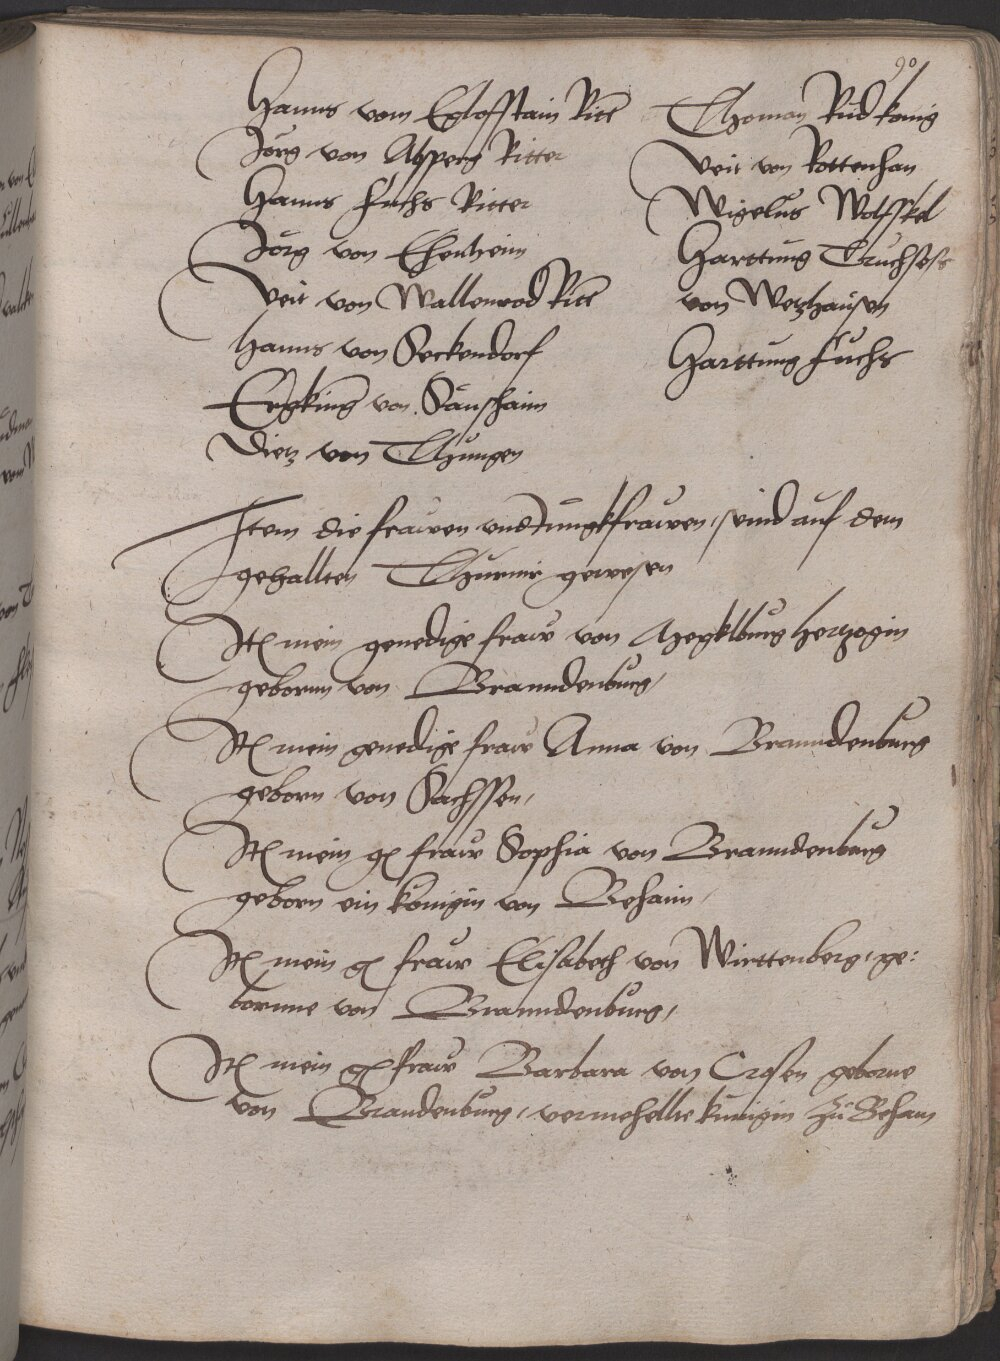 90
Hanns vom Eglofstain Ritt
Jorg von Absperg Ritter
Hanns Fuchs Ritter
Jorg von Ehenheim
Veit von Wallenrod Ritt
Hanns von Seckendorf
Ergkinng von Säunshaim
Dietz von Thungen
Thoman Rüd konig
Veit von Rottenhan
Wigelus Wolfskel
Harttung Truchses
von Wetzhausen
Harttung Fuchs
Item die frawen vnd Jungkfrawen, sind auf dem
gehallten Thurnir gewesen
Itẽ mein genedige fraw von Megklburg Hertzogin
gebornn von Branndenburg,
Itẽ mein genedige fraw Anna von Branndenburg
geborn von Sachssen,
Itẽ mein g fraw Sophia von Branndenburg
geborn ein königin von Behaim,
Itẽ mein g fraw Elisabeth von Wirttenberg, ge:
bornne von Branndenburg,
Itẽ mein g fraw Barbara von Crosen geborne
von Brandenburg, vermehellte kunigin zu Beham